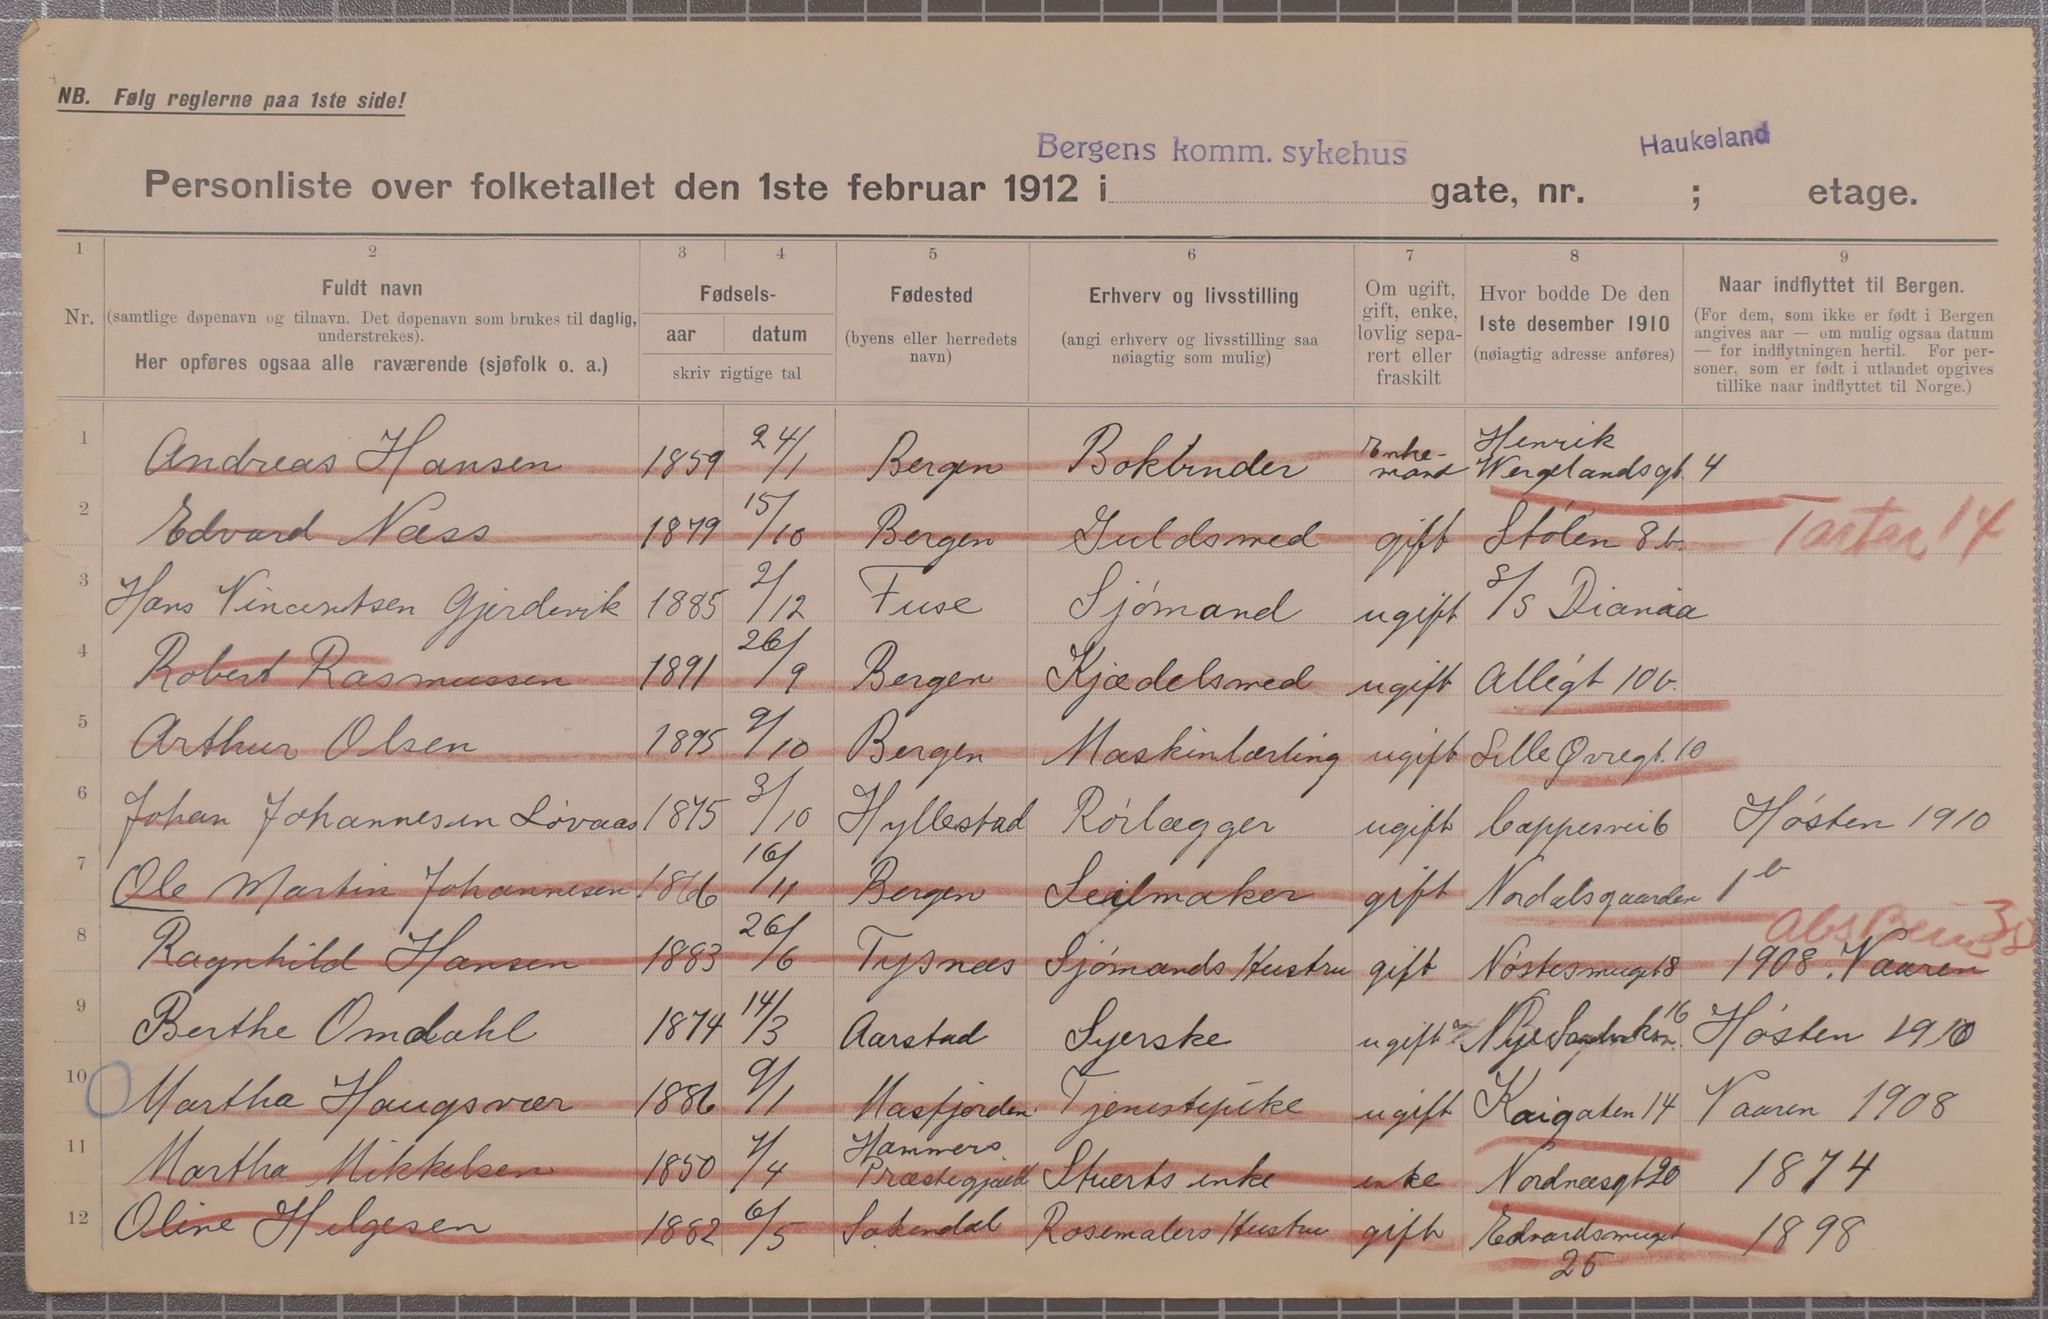 NB. Følg reglerne paa 1ste side!
Bergens komm. sykehus Haukeland
Personliste over folketallet den 1ste februar 1912 i gate, nr. ; etage.
1 2 3 4 5 6 7 8 9
Nr.
Fuldt navn
(samtlige døpenavn og tilnavn. Det døpenavn som brukes til daglig,
understrekes).
Her opføres ogsaa alle raværende (sjøfolk o. a.)
Fødsels-
aar datum
skriv rigtige tal
Fødested
(byens eller herredets
navn)
Erhverv og livsstilling
(angi erhverv og livsstilling saa
nøiagtig som mulig)
Om ugift,
gift, enke,
lovlig sepa-
rert eller
fraskilt
Hvor bodde De den
1ste desember 1910
(nøiagtig adresse anføres)
Naar indflyttet til Bergen.
(For dem, som ikke er født i Bergen
angives aar — om mulig ogsaa datum
— for indflytningen hertil. For per-
soner, som er født i utlandet opgives
tillike naar indflyttet til Norge.)
1 Andreas Hansen 1859 24/1 Bergen Bokbinder Enke-
mand Henrik
Wergelandsgt. 4
2 Edvard Næss 1879 15/10 Bergen Guldsmed gift Stølen 8b. Tartar 14
3 Hans Vincentsen Gjerdevik 1885 2/12 Fuse Sjómand ugift S/S Dianaa
4 Robert Rasmussen 1891 26/9 Bergen Kjædelsmed ugift Allégt 10b.
5 Arthur Olsen 1895 9/10 Bergen Maskinlærling ugift Lille Øvregt. 10
6 Johan Johannesen Lóvaas 1875 3/10 Hyllestad Rórlægger ugift Cappesvei 6 Hósten 1910
7 Ole Martin Johannesen 1866 16/11 Bergen Seilmaker gift Nordalsgaarden 1b
8 Ragnhild Hansen 1883 26/6 Tysnæs Sjómands Hustru gift Nóstesmuget 8 1908 Vaaren
9 Berthe Omdahl 1874 14/3 Aarstad Syerske ugift Nye 16 Hósten 1910
10 Martha Haugsvær 1886 9/1 Masfjorden Tjenestepike ugift Kaigaten 14 Vaaren 1908
11 Martha Mikkelsen 1850 4/4 Hammers
Præstegjæld Stuerts enke enke Nordnæsgt 20 1874
12 Oline Helgesen 1882 6/5 Sokendal Rosemalers Hustru gift Edvardsmuget
25 1898